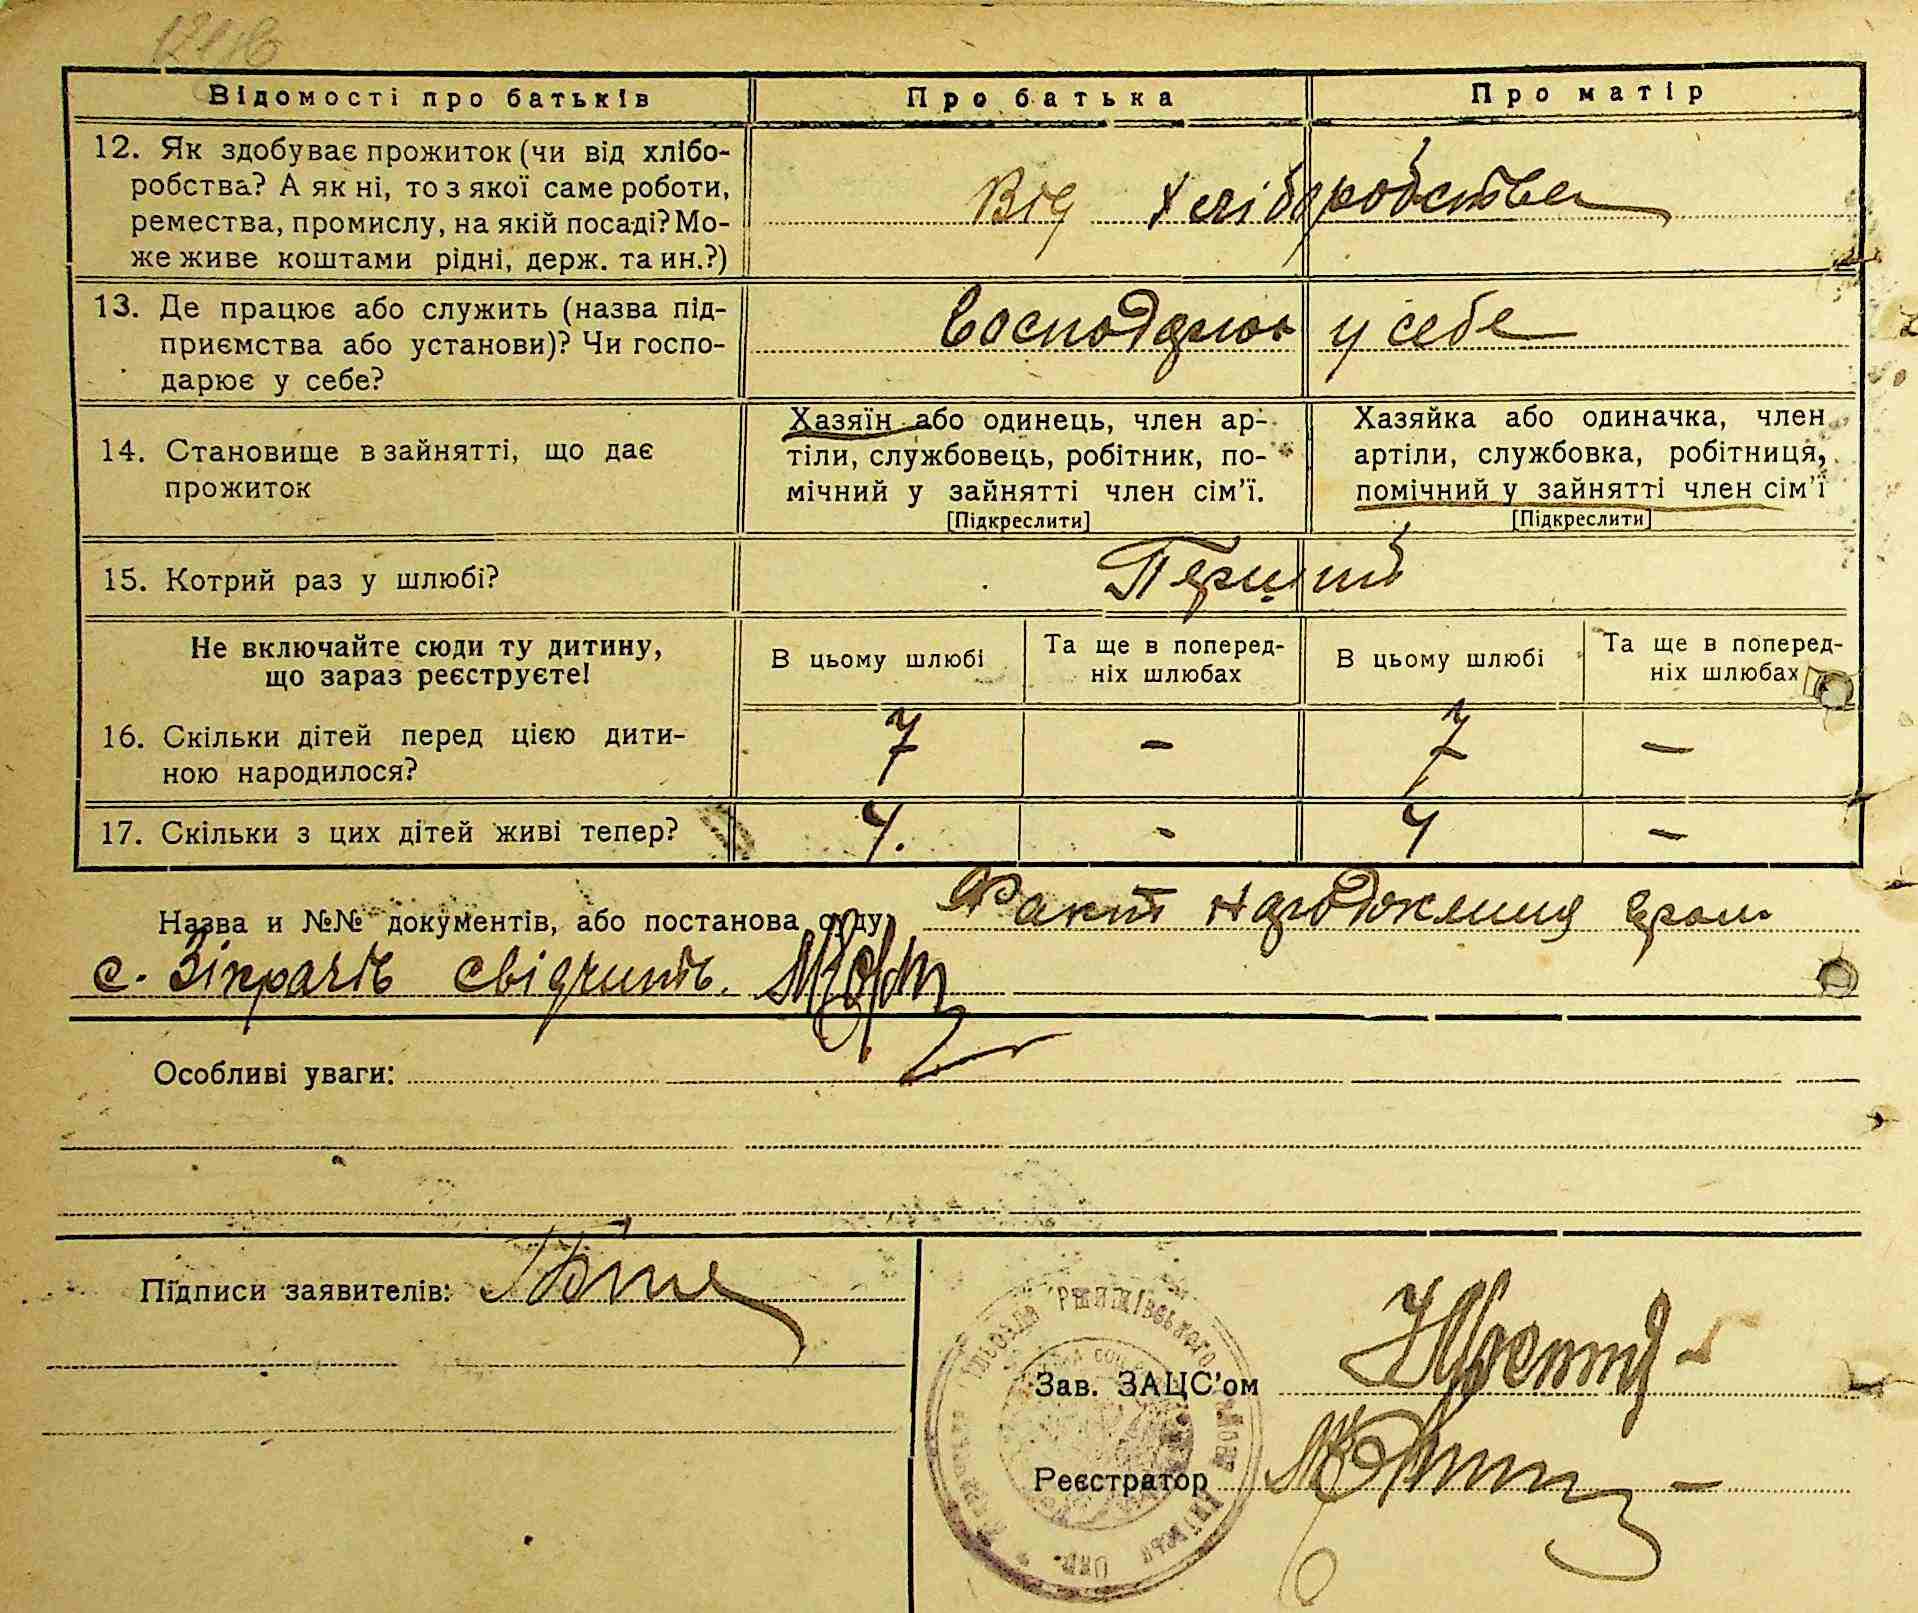 Відомості про батьків
Про батька
Про матір
12. Як здобуває прожиток (чи від хлібо-
робства? А як ні, то з якої саме роботи,
ремества, промислу, на якій посаді? Мо-
же живе коштами рідні, держ. та ин.?)
Від хліборобства
13. Де працює або служить (назва під-
приємства або установи)? Чи госпо-
дарює у себе?
у себе
14. Становище в зайнятті, що дає
прожиток
Хазяїн або одинець, член ар-
тіли, службовець, робітник, по-
мічний у зайнятті член сім'ї.
[Підкреслити]
Хазяйка або одиначка, член
артіли, службовка, робітниця,
помічний у зайнятті член сім'ї
[Підкреслити]
15. Котрий раз у шлюбі?
Перший
Не включайте сюди ту дитину,
що зараз реєструєте!
В цьому шлюбі
Та ще в поперед-
ніх шлюбах
В цьому шлюбі
Та ще в поперед-
ніх шлюбах
16. Скільки дітей перед цією дити-
ною народилося?
7 - 7 -
17. Скільки з цих дітей живі тепер?
4. - 4 -
Назва и №№ документів, або постанова суду Факт народження
с. Зікрачів свідчить.
Особливі уваги:
Підписи заявителів:
Ржищівського
Зав. ЗАЦС'ом
Реєстратор